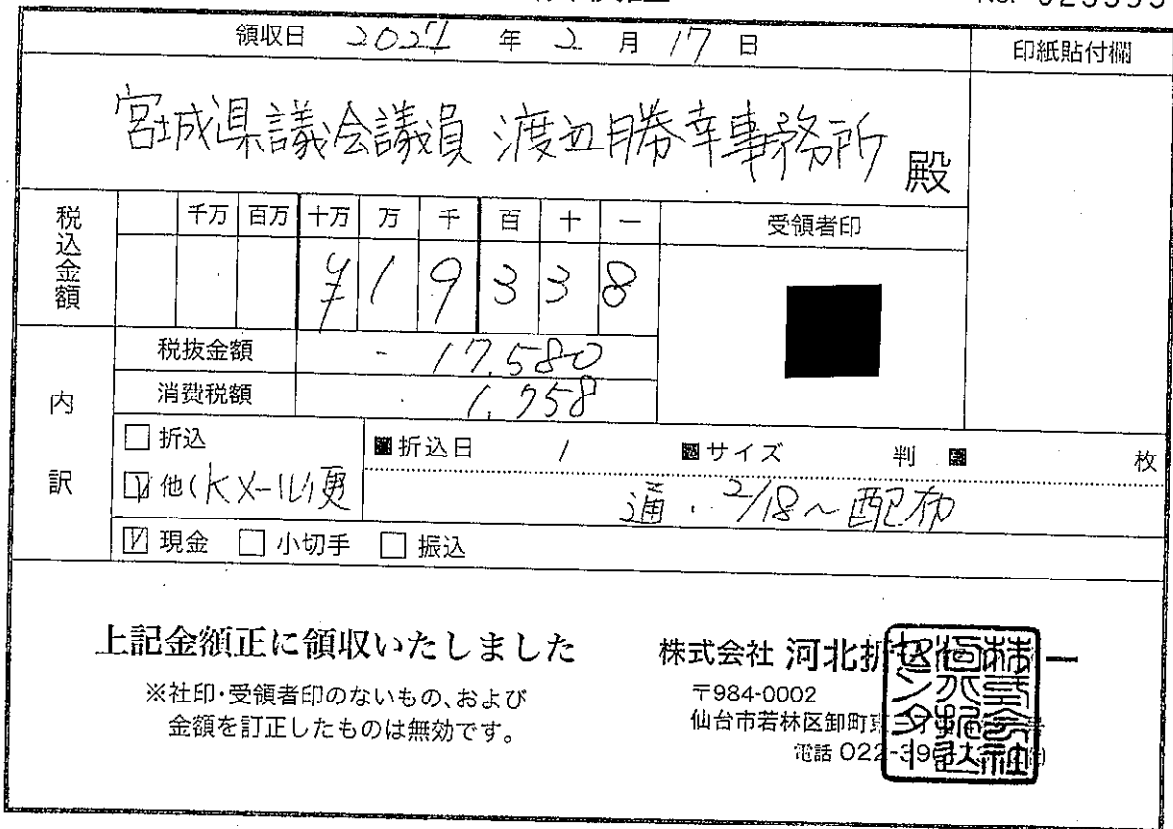 No.
領収日 2021 年 2 月 17 日
印紙貼付欄
宮城県議会議員 渡辺勝幸事務所 殿
税込金額
千万 百万 十万 万 千 百 十 一
受領者印
¥19338
内訳
税抜金額 17,580
消費税額 1,758
□ 折込
■折込日 / ■サイズ 判 ■ 枚
☑ 他(Kメール)更
通. 2/18~配布
☑ 現金 □ 小切手 □ 振込
上記金額正に領収いたしました
※社印・受領者印のないもの、および
金額を訂正したものは無効です。
株式会社 河北折込センター
〒984-0002
仙台市若林区卸町東
電話 022-39
株式会社河北折込センター